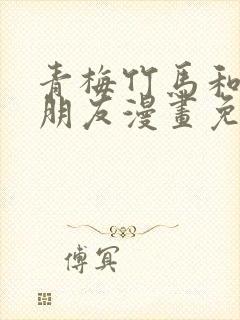 青梅竹馬和
朋友漫畫免
傅冥